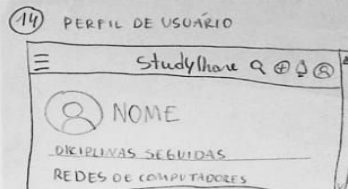 14 PERFIL DE USUÁRIO
StudyShare
NOME
DICIPLINAS SEGUIDAS
REDES DE COMPUTADORES